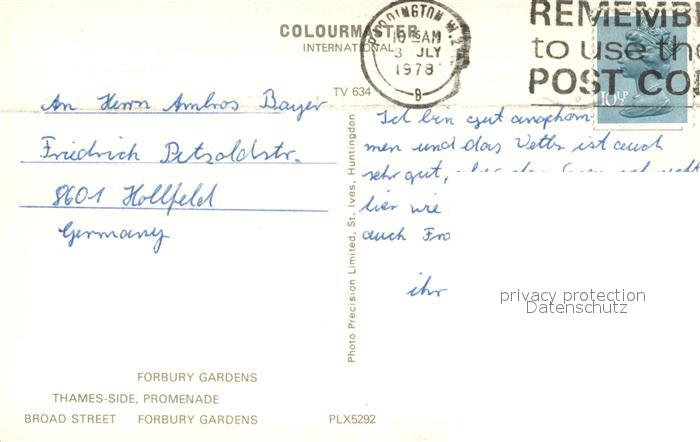 COLOURMASTER
INTERNATIONAL
TV 634
PADDINGTON W.2
10 AM
3 JLY
1978
B
REMEMB
to use the
POST CO
10½P
An Herrn Ambros Bayer
Friedrich Petzoldstr.
8601 Hollfeld
Germany
Ich bin gut angekom
men und das Vetter ist auch
sehr gut,
hier wie
auch Fro
ihr
privacy protection
Datenschutz
Photo Precision Limited, St. Ives, Huntingdon
FORBURY GARDENS
THAMES-SIDE, PROMENADE
BROAD STREET FORBURY GARDENS
PLX5292